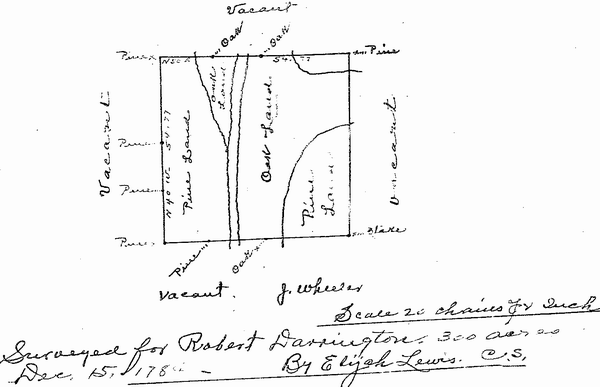 Vacant
Oak
Oak
Pine
N 50 E
54.77
Pine
Vacant
N 40 W 54.77
Pine Land
Oak Land
Oak Land
Pine Land
Vacant
Pine
Pine
Pine
Pine
Oak
Stake
Vacant. J. Wheeler
Scale 20 chains pr Inch
Surveyed for Robert Darrington. 300 acres
Dec. 15, 178 By Elijah Lewis. C.S.